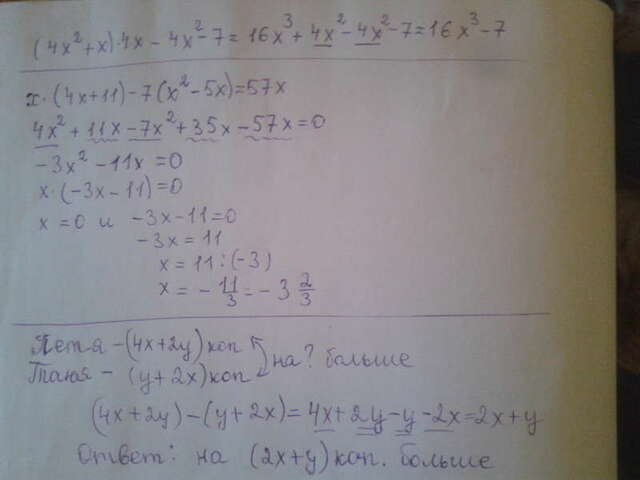 (4x²+x)·4x - 4x² - 7 = 16x³ + 4x² - 4x² - 7 = 16x³ - 7
x·(4x+11) - 7(x² - 5x) = 57x
4x² + 11x - 7x² + 35x - 57x = 0
-3x² - 11x = 0
x·(-3x - 11) = 0
x = 0 и -3x - 11 = 0
-3x = 11
x = 11 : (-3)
x = - 11/3 = - 3 2/3
Петя - (4x+2y) коп
на? больше
Таня - (y + 2x) коп
(4x + 2y) - (y + 2x) = 4x + 2y - y - 2x = 2x + y
Ответ: на (2x+y) коп. больше